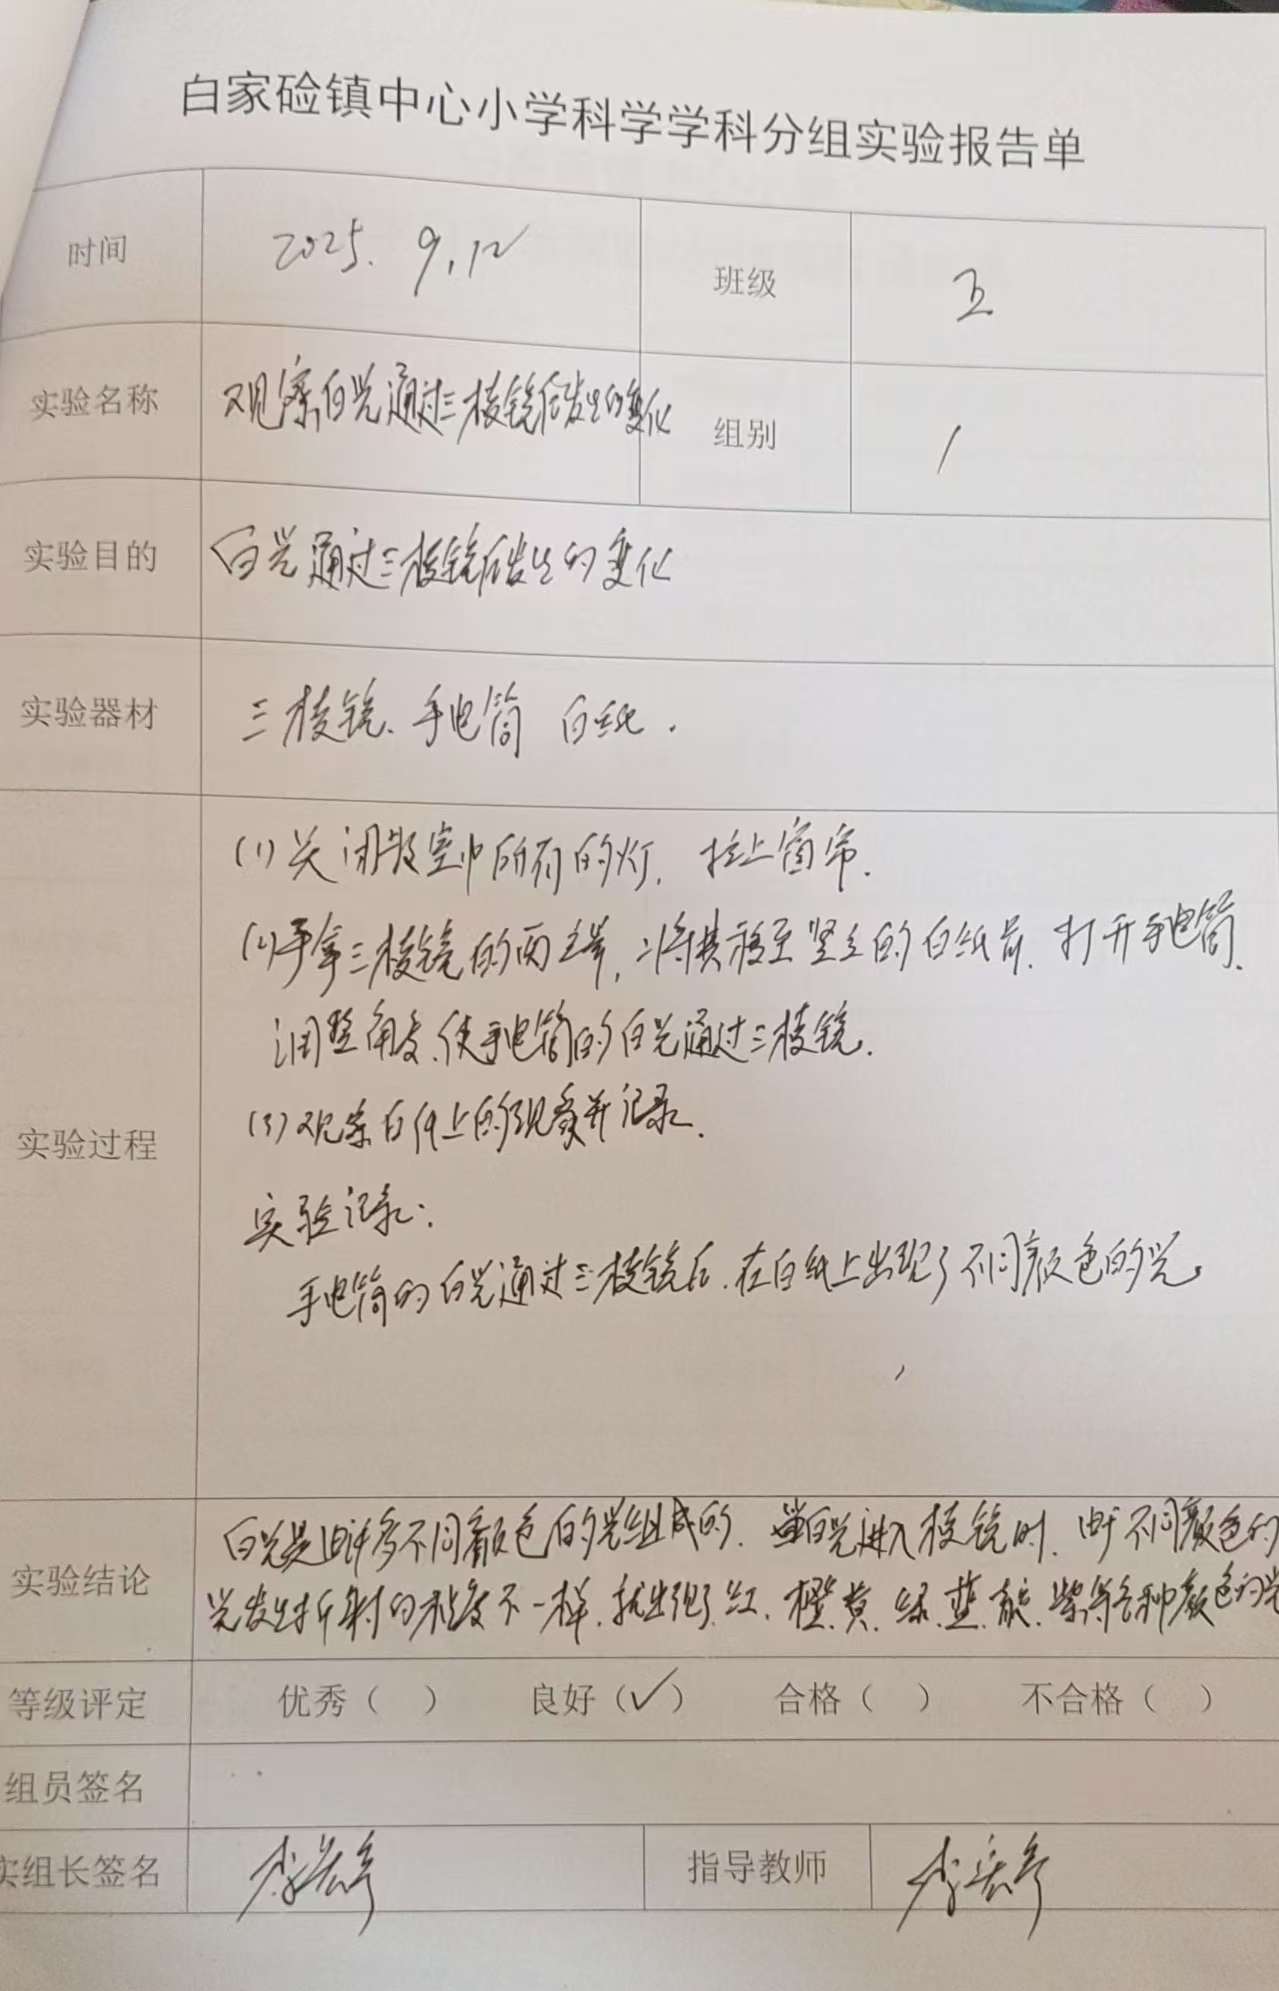 白家硷镇中心小学科学学科分组实验报告单
时间 2025. 9.12 班级 五
实验名称 观察白光通过三棱镜后发生的变化 组别 1
实验目的 白光通过三棱镜后发生的变化
实验器材 三棱镜、手电筒 白纸.
实验过程
(1)关闭教室中所有的灯,拉上窗帘.
(2)手拿三棱镜的两端,将其移至竖立的白纸前.打开手电筒.
调整角度,使手电筒的白光通过三棱镜.
(3)观察白纸上的现象并记录.
实验记录:
手电筒的白光通过三棱镜后.在白纸上出现了不同颜色的光。
实验结论
白光是由许多不同颜色的光组成的.当白光进入棱镜时.由于不同颜色的
光发生折射的程度不一样.就出现了红.橙.黄.绿.蓝.靛.紫等各种颜色的光
等级评定 优秀( ) 良好(✓) 合格( ) 不合格( )
组员签名
实组长签名 李 指导教师 李